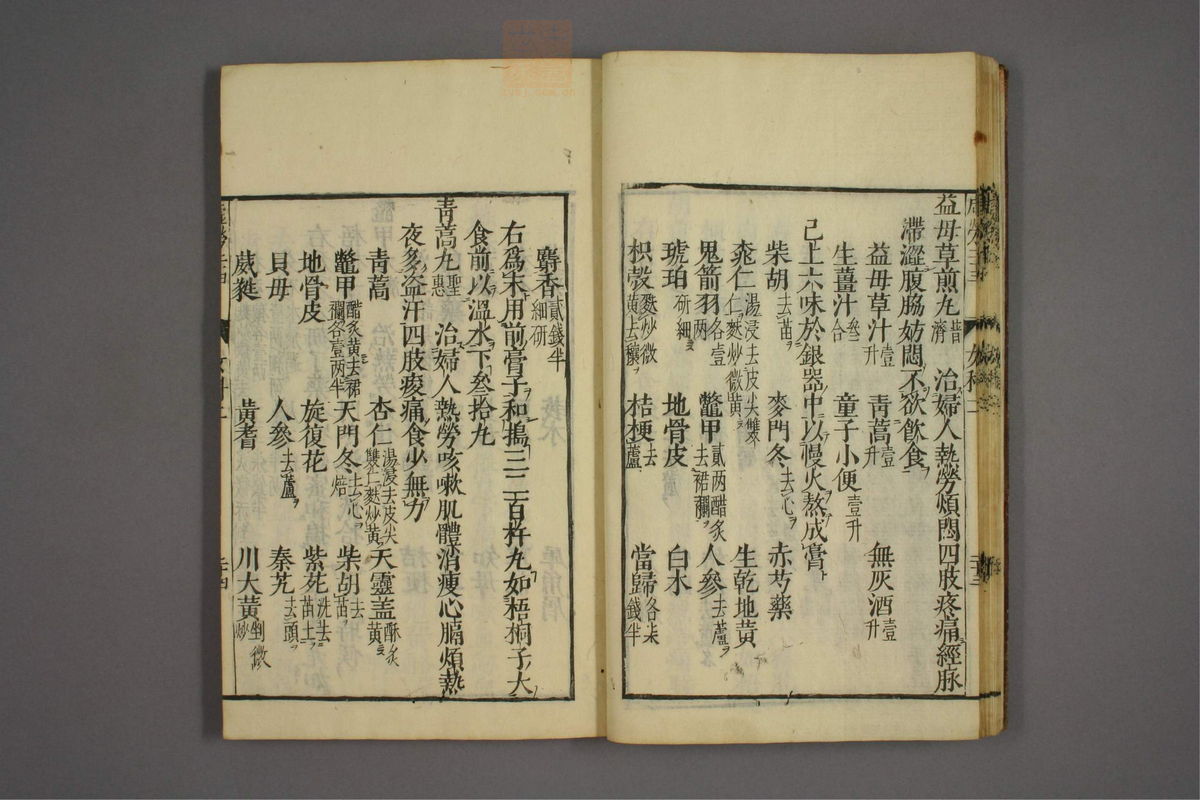 益母草煎丸普濟　治婦人熱勞煩悶四肢疼痛經脉
滯澀腹脇妨悶不欲飲食
益母草汁壹升　青蒿壹升　無灰酒壹升
生薑汁叁合　童子小便壹升
已上六味於銀器中以慢火熬成膏
柴胡去苗　麥門冬去心　赤芍藥
桃仁湯浸去皮尖雙仁麩炒微黃　生乾地黃
鬼箭羽各壹两　鼈甲貳两醋炙去裙襴　人參去蘆
琥珀研細　地骨皮　白木
枳殼麩炒微黃去穰　桔梗去蘆　當歸各柒錢半
麝香貳錢半細研
右爲末用前膏子和搗三二百杵丸如梧桐子大
食前以溫水下叁拾丸
青蒿丸聖惠　治婦人熱勞咳嗽肌體消瘦心膈煩熱
夜多盗汗四肢痠痛食少無力
青蒿　杏仁湯浸去皮尖雙仁麩炒黃　天靈盖酥炙黃
鼈甲醋炙黄去裙襴各壹两半　天門冬去心焙　柴胡去苗
地骨皮　旋復花　紫菀洗去苗土
貝母　人參去蘆　秦艽去頭
葳蕤　黄耆　川大黃剉微炒